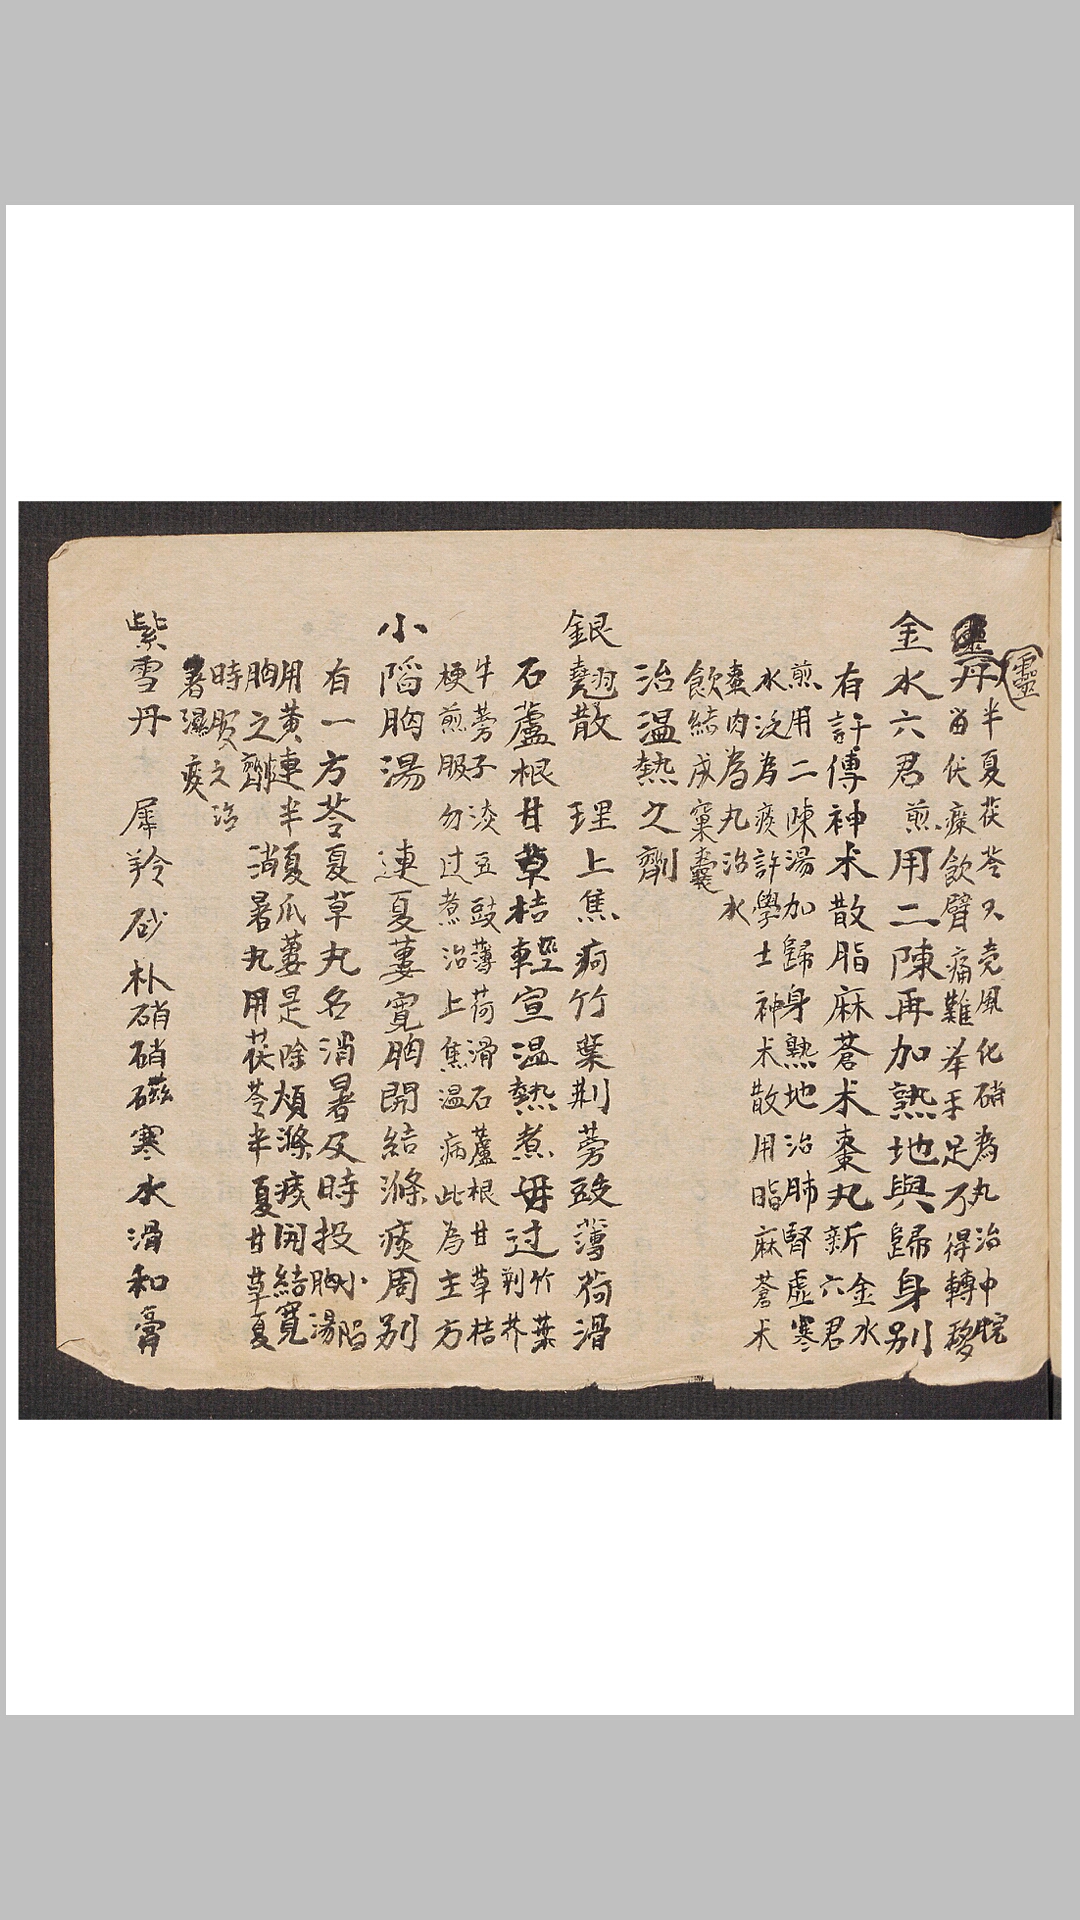 靈
靈丹半夏茯苓只壳風化硝為丸治中脘
畱伏痰飲臂痛難举手足不得轉移
金水六君煎用二陳再加熟地與歸身别
有許傳神术散脂麻蒼术棗丸新金水六君
煎用二陳湯加歸身熟地治肺腎虛寒
水泛為痰許學士神术散用脂麻蒼术
棗肉為丸治水
飲結成窠囊
治温熱之劑
銀翹散 理上焦疴竹葉荆蒡豉薄荷滑
石蘆根甘草桔輕宣温熱煮毋过竹葉荆芥
牛蒡子淡豆豉薄荷滑石蘆根甘草桔
梗煎服勿过煮治上焦温病此為主方
小陷胸湯 連夏蔞寬胸開結滌痰周别
有一方苓夏草丸名消暑及時投小陷胸湯
用黄連半夏瓜蔞是除煩滌痰開結寬
胸之劑 消暑丸用茯苓半夏甘草夏
時服之治
暑濕痰
紫雪丹 犀羚砂朴硝硝磁寒水滑和膏